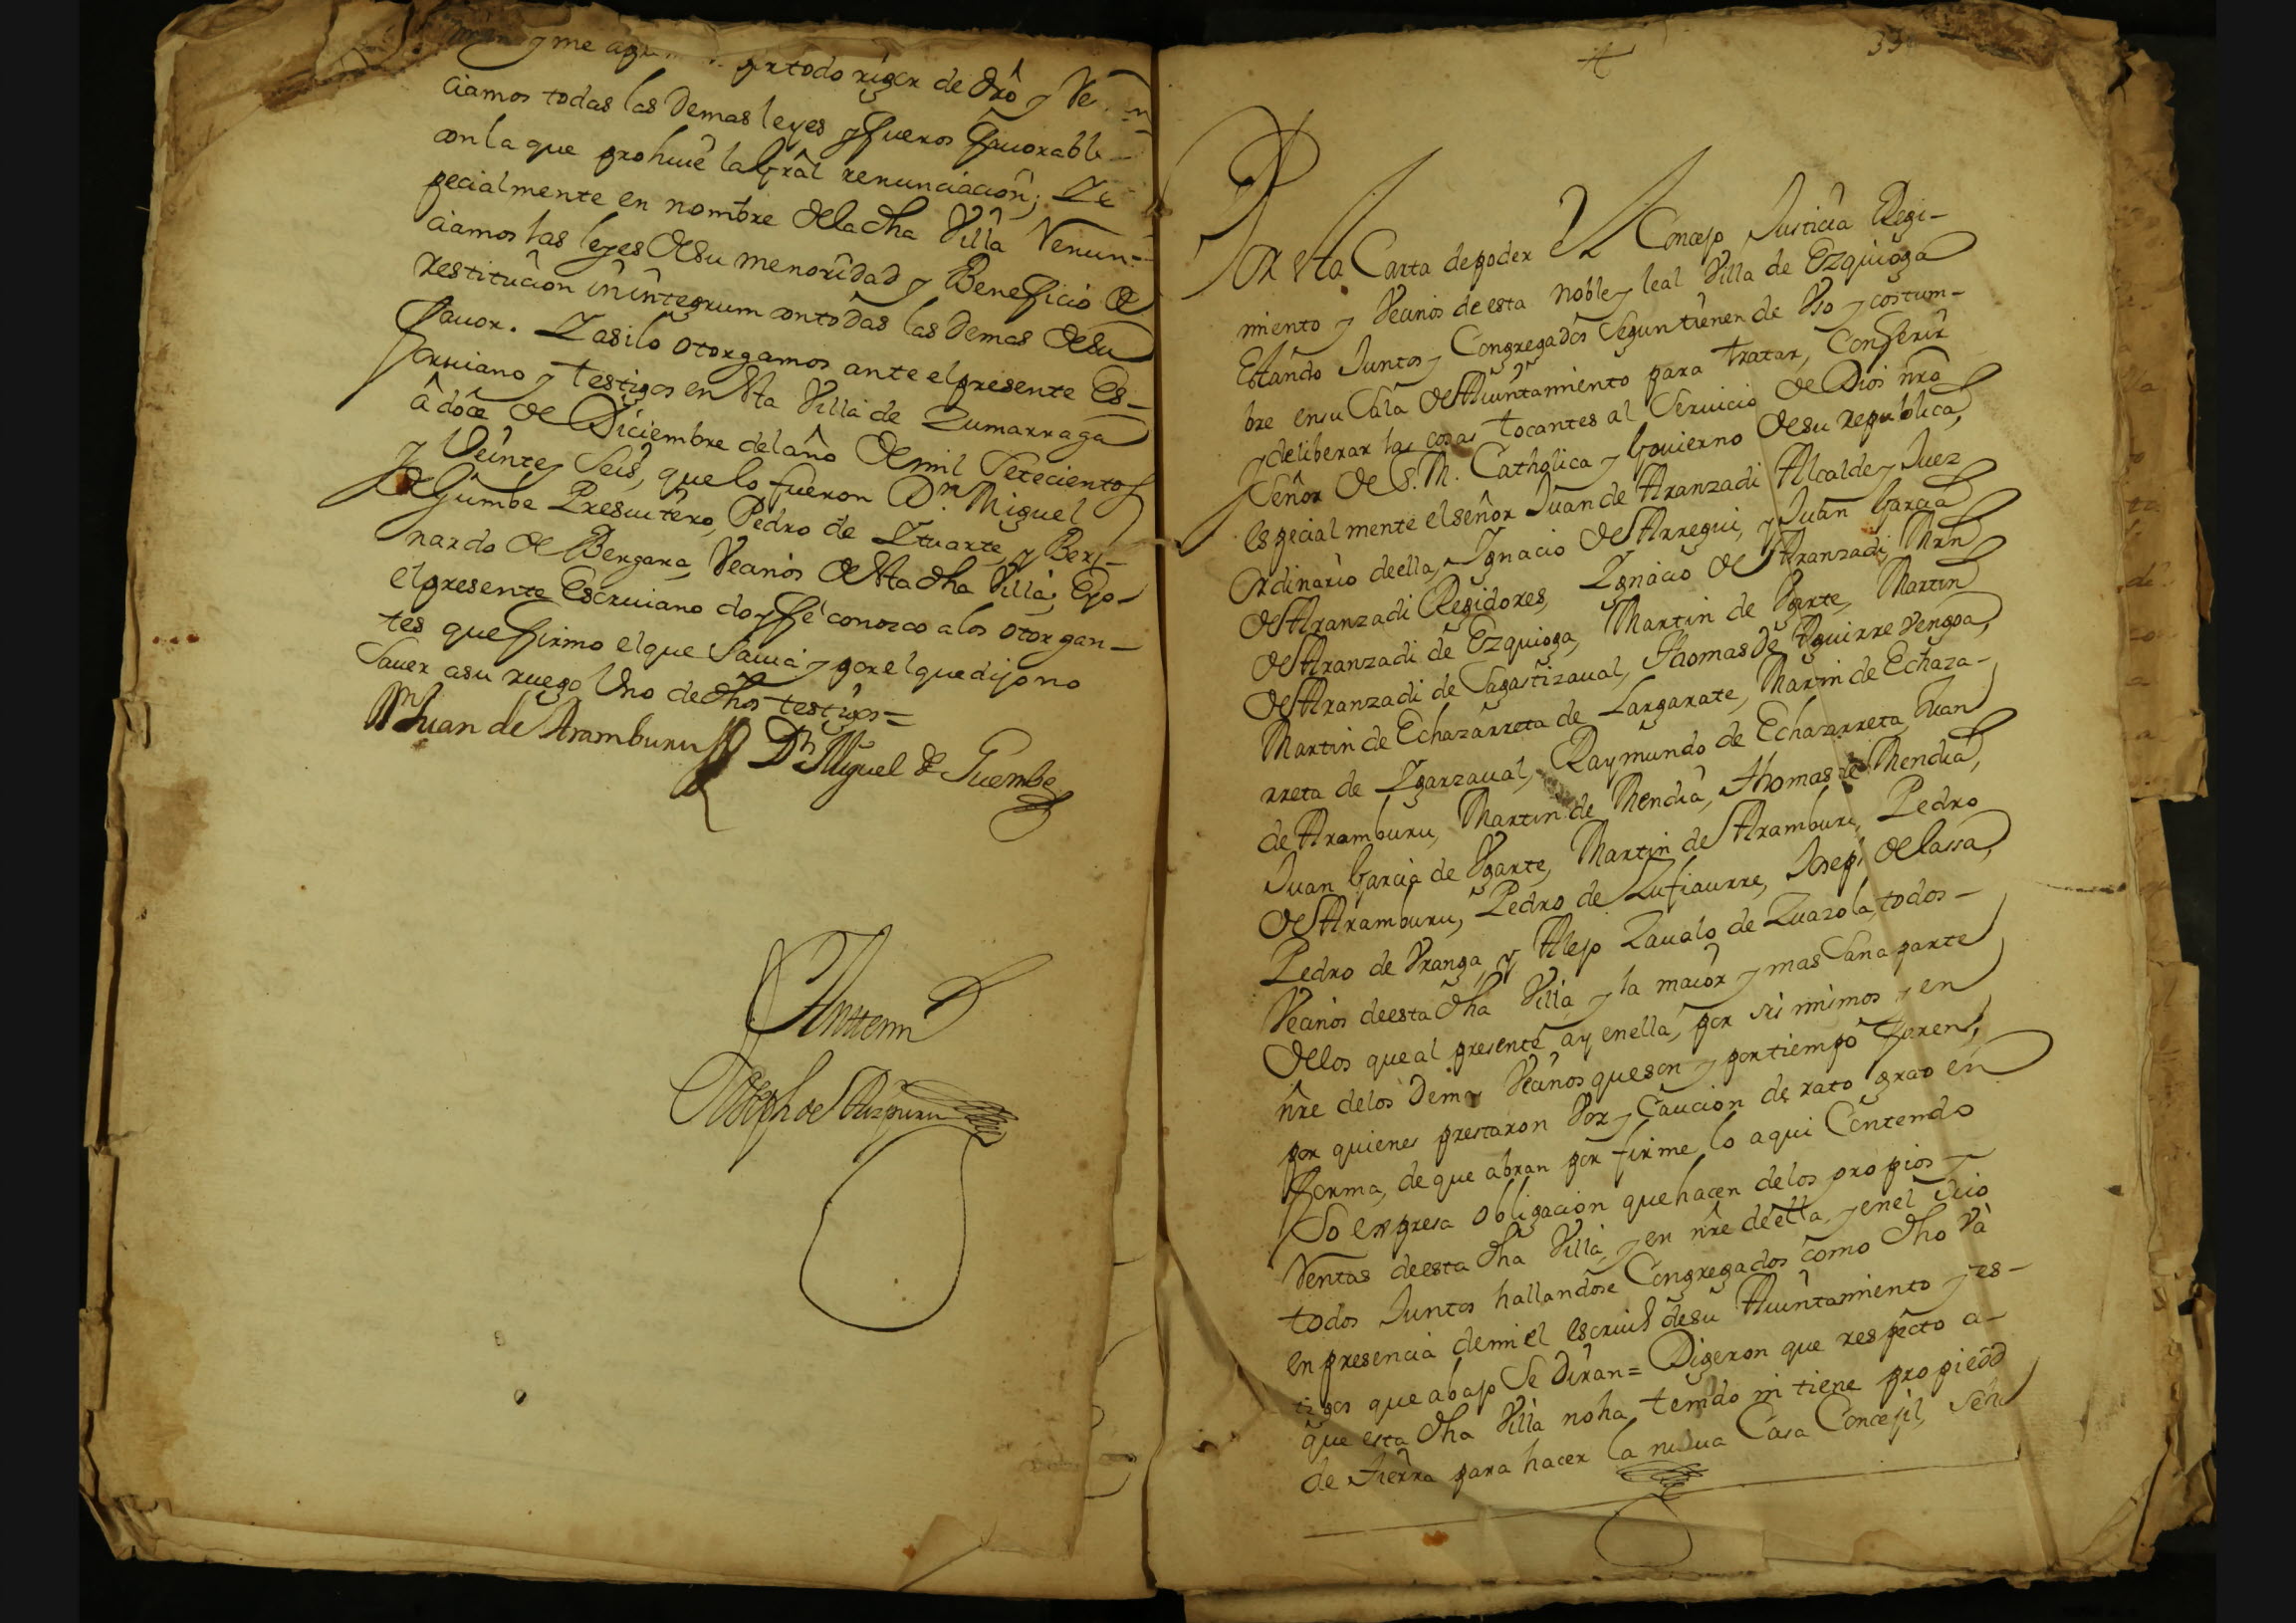 y me a por todo rigor de dro y Re
ciamos todas las demas leyes y fueros fauorabl
con la que prohiue la gral renunciacion; Y e
pecialmente en nombre de la dha Villa Renun-
ciamos las leyes de su menoridad y Beneficio de
restitucion in integrum con todas las demas de su
fauor. Y asi lo otorgamos ante el presente Es-
criuano y testigos en esta Villa de Zumarraga
â doce de Diciembre del año de mil setecientos
y Veinte y Seis, que lo fueron Dn. Miguel
de Guembe Presuitero, Pedro de Yzuarte, y Ber-
nardo de Bergara, Vecinos de esta dha Villa; E yo
el presente Escriuano doy fé conozco a los otorgan-
tes que firmo el que sauia y por el que dijo no
sauer a su ruego Uno de dhos testigos =
Mn Juan de Aramburu Dn Miguel de Guembe
Antemi
Joseph de Aizpuru
Por esta Carta de poder El Concejo Justicia Regi-
miento y Vecinos de esta noble y leal Villa de Ezquioga
Estando Juntos y Congregados Segun tienen de Vso y costum-
bre en su Sala de Aiuntamiento para tratar, Conferir
y deliberar las cosas tocantes al Seruicio de Dios nro
Señor de S. M. Catholica y Gouierno de su republica,
especialmente el señor Juan de Aranzadi Alcalde y Juez
Ordinario de ella, Ygnacio de Arregui, y Juan Garcia
de Aranzadi Regidores, Ygnacio de Aranzadi, Mrn
de Aranzadi de Ezquioga, Martin de Vgarte, Martin
de Aranzadi de Sagastizaual, Thomas de Aguirre Vengoa,
Martin de Echazarreta de Largarate, Martin de Echaza-
rreta de Ygarzaual, Raymundo de Echazarreta, Juan
de Aramburu, Martin de Mendia, Thomas de Mendia,
Juan Garcia de Vgarte, Martin de Aramburu, Pedro
de Aramburu, Pedro de Zufiaurre, Joseph de lassa,
Pedro de Vranga, y Alejo Zaualo de Zuazola, todos
Vecinos de esta dha Villa, y la maior y mas Sana parte
de los que al presente ay en ella, por si mismos y en
nre de los Demas Vecinos que son y por tiempo fueren,
por quienes prestaron Voz y Caucion de rato grato en
forma, de que abran por firme lo aqui Contenido
So espresa obligacion que hacen de los propios y
Rentas de esta dha Villa, y en nre de ella, y en el Suio
todos Juntos hallandose Congregados como dho Và
en presencia de mi el escriuo de su Aiuntamiento y tes-
tigos que abajo Se Diran = Digeron que respecto a
que esta dha Villa no ha tenido ni tiene propiedd
de tierra para hacer la nueua Casa Concejil, se h